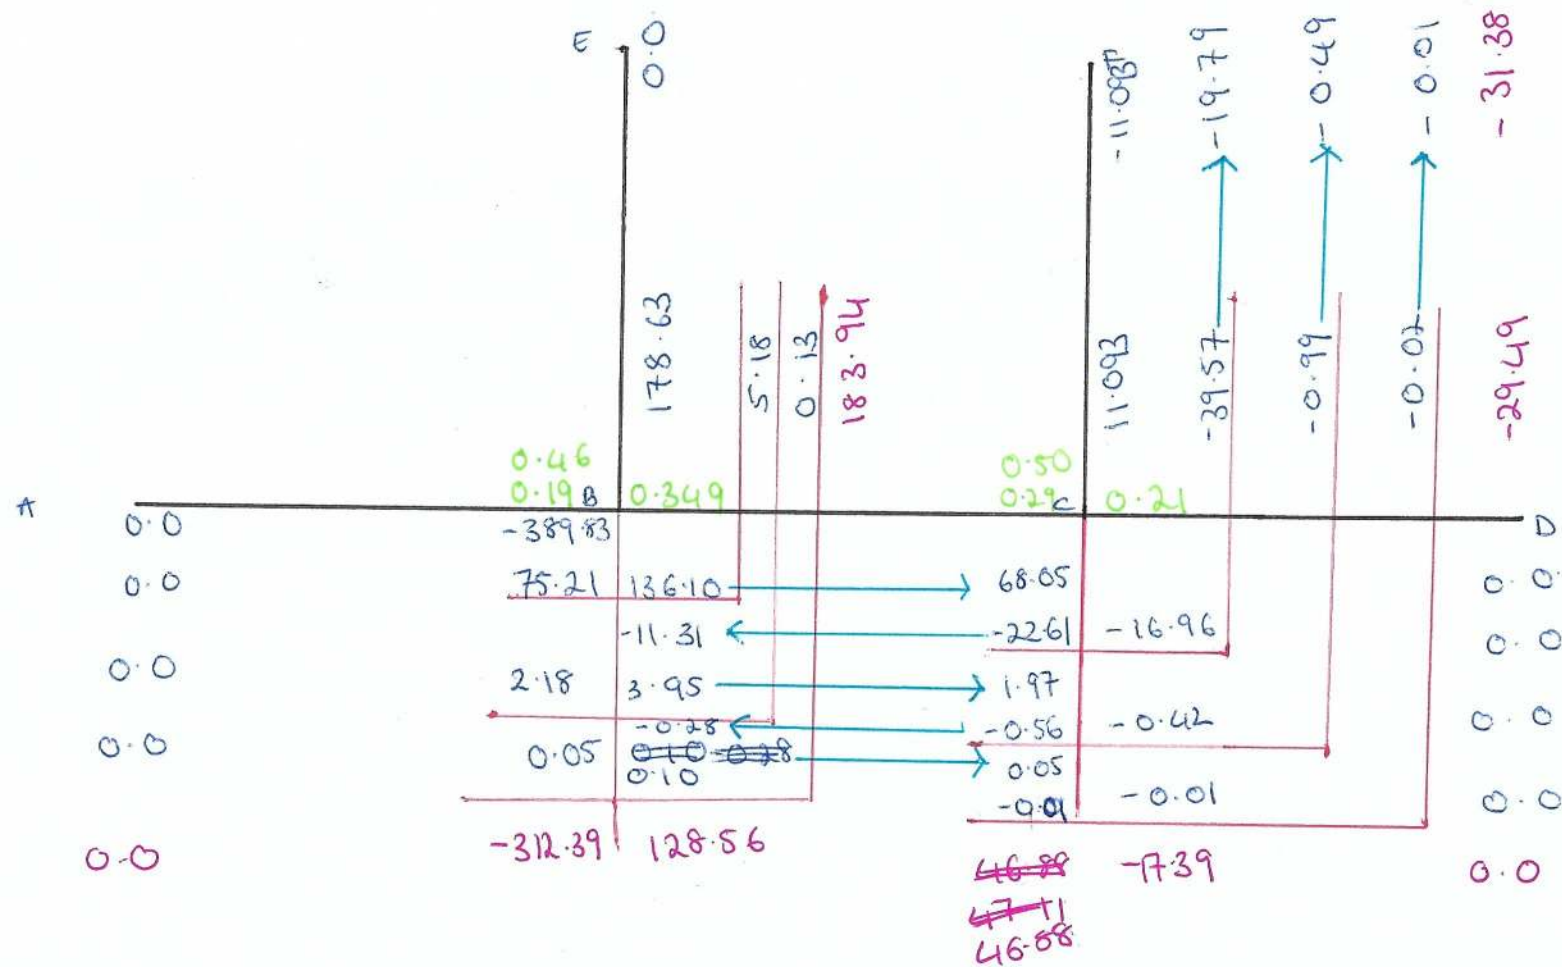 E
0.0
0.0
-11.093
-19.79
-0.49
-0.01
-31.38
178.63
5.18
0.13
183.94
11.093
-39.57
-0.99
-0.02
-29.49
0.46
0.19 B 0.349
0.50
0.29 C 0.21
A
D
0.0 -389.83
0.0 75.21 136.10 68.05 0.0
-11.31 -22.61 -16.96 0.0
0.0 2.18 3.95 1.97
-0.28 -0.56 -0.42 0.0
0.0 0.05 0.10 -0.28 0.05
0.10
-0.01 -0.01 0.0
-312.39 128.56
0.0 46.88 -17.39 0.0
47.11
46.88